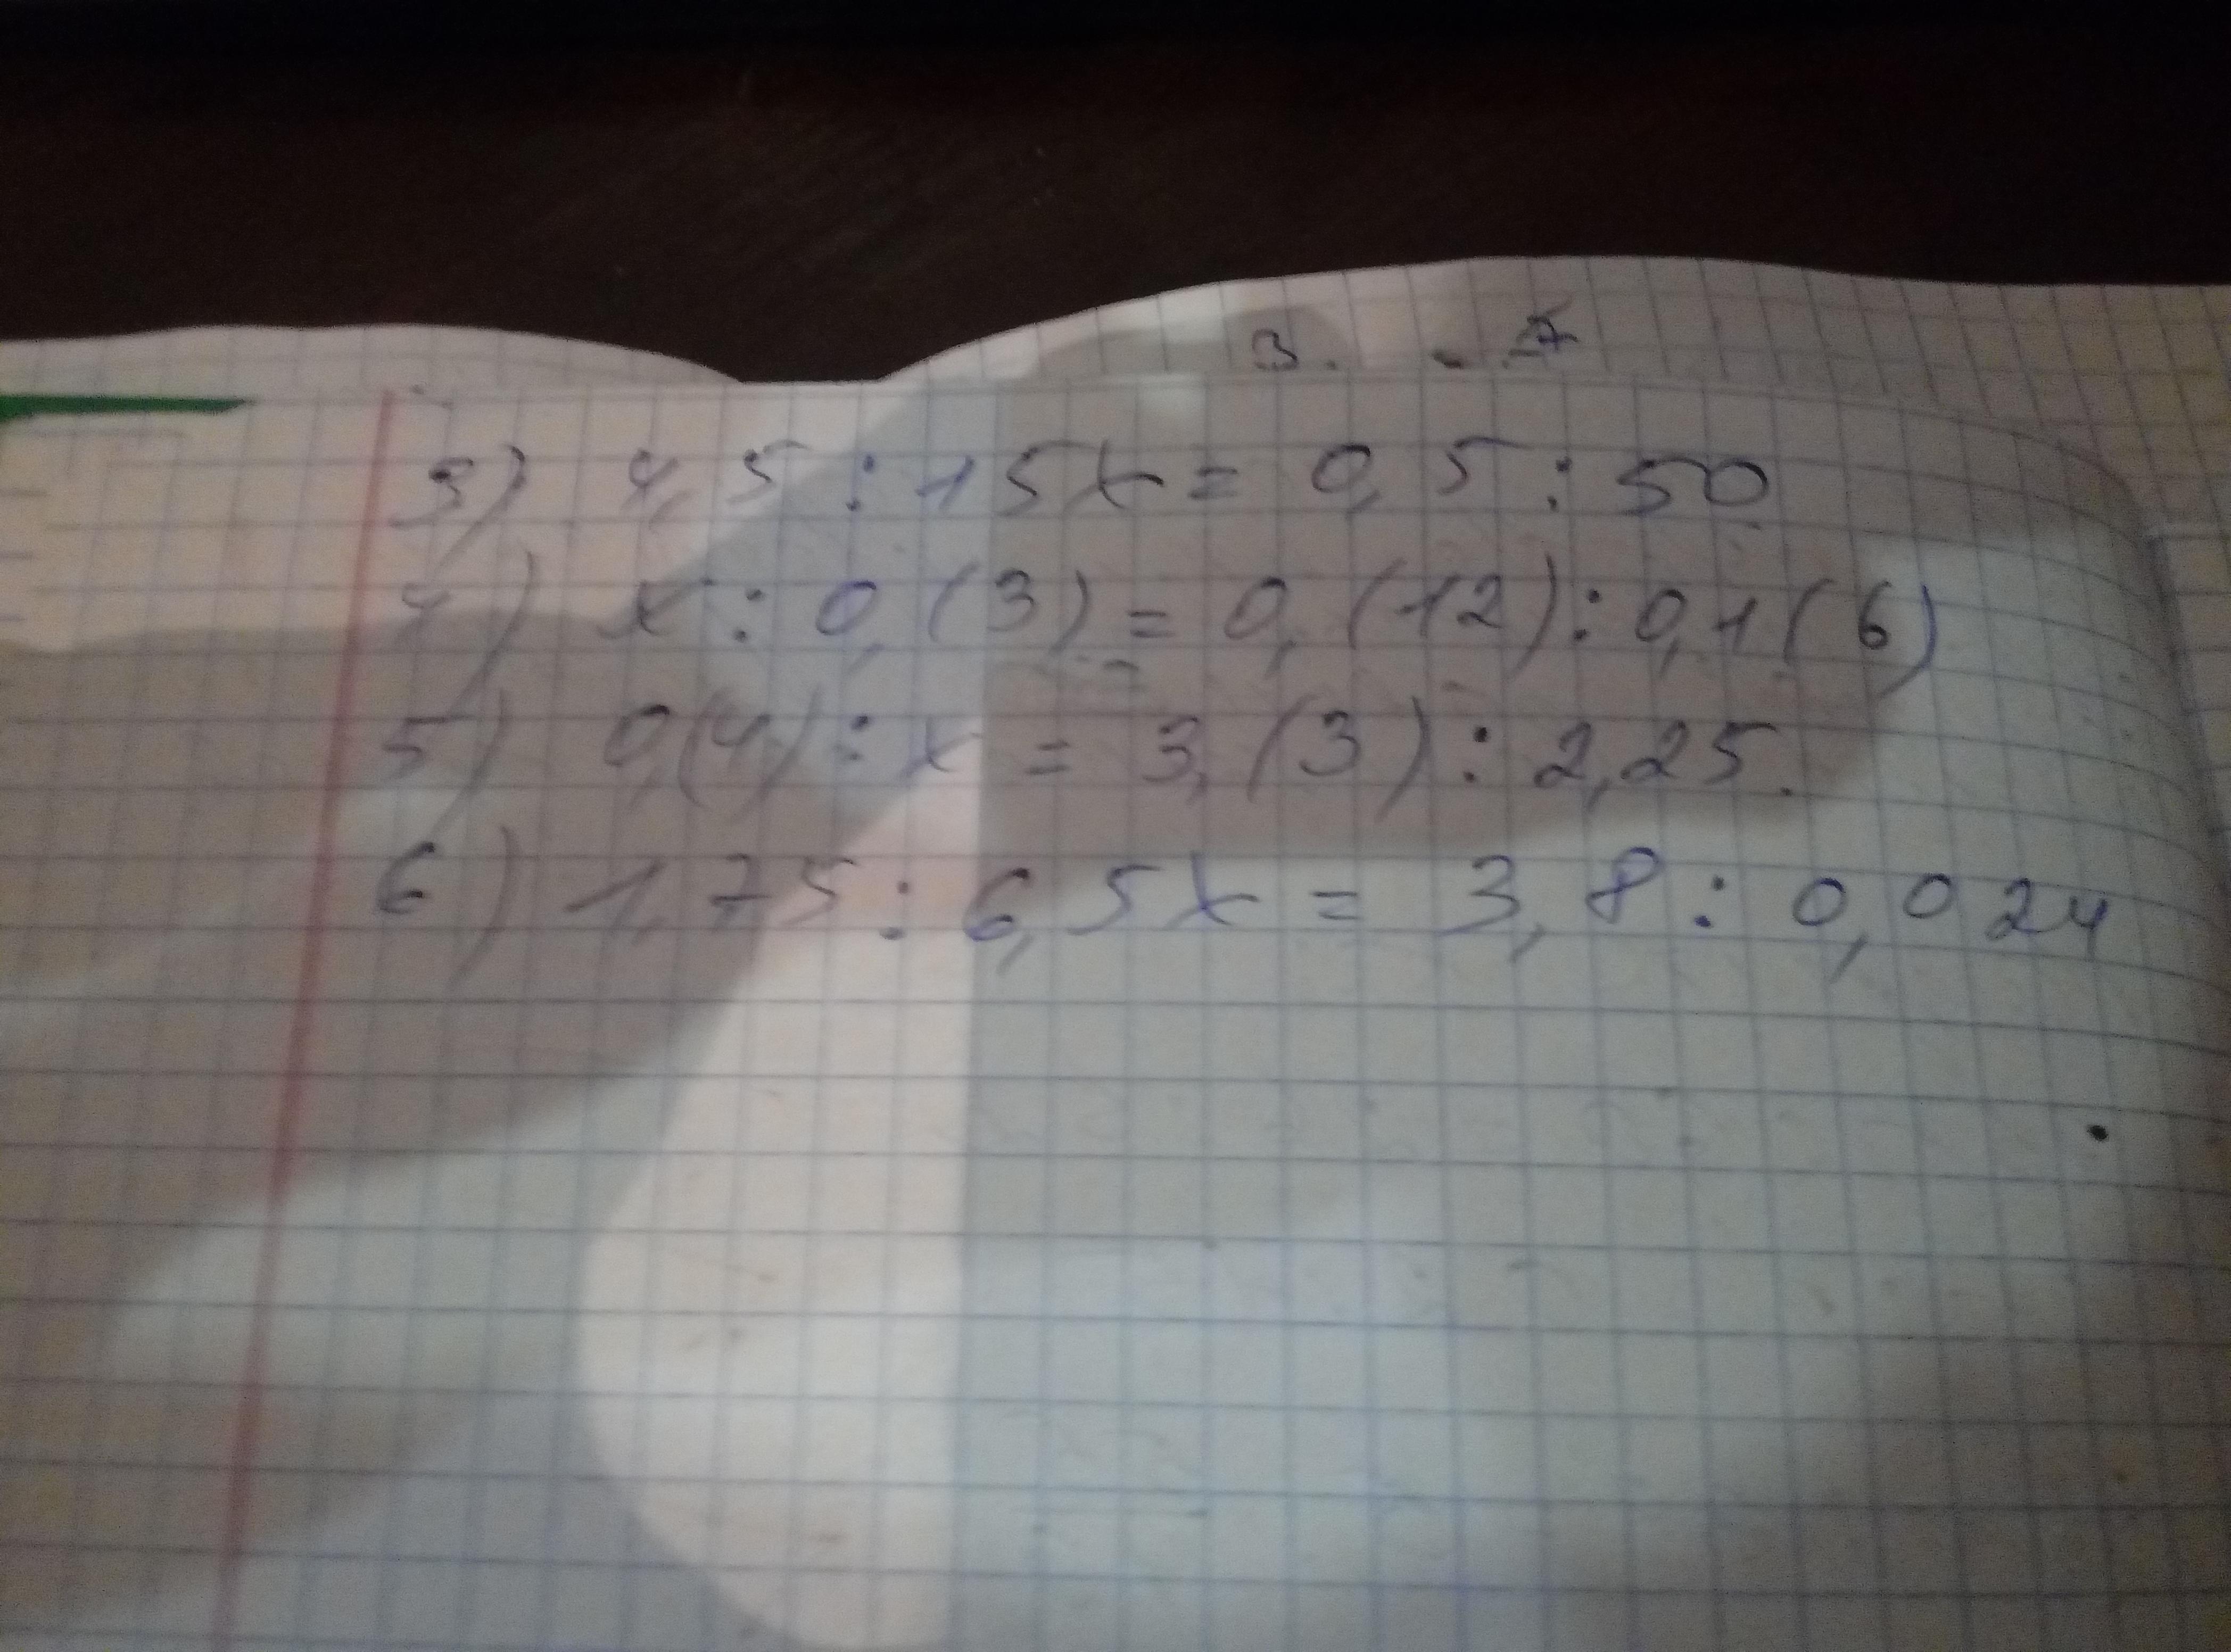 3) 4,5 : 15x = 0,5 : 50
4) x : 0,(3) = 0,(12) : 0,1(6)
5) 0,(4) : x = 3,(3) : 2,25.
6) 1,75 : 6,5x = 3,8 : 0,024